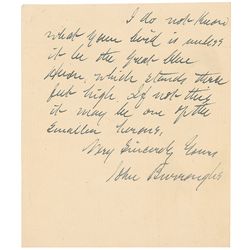 I do not know
what your bird is unless
it be the Great Blue
Heron, which stands three
feet high. If not this
it may be one of the
smaller herons.
Very Sincerely Yours
John Burroughs